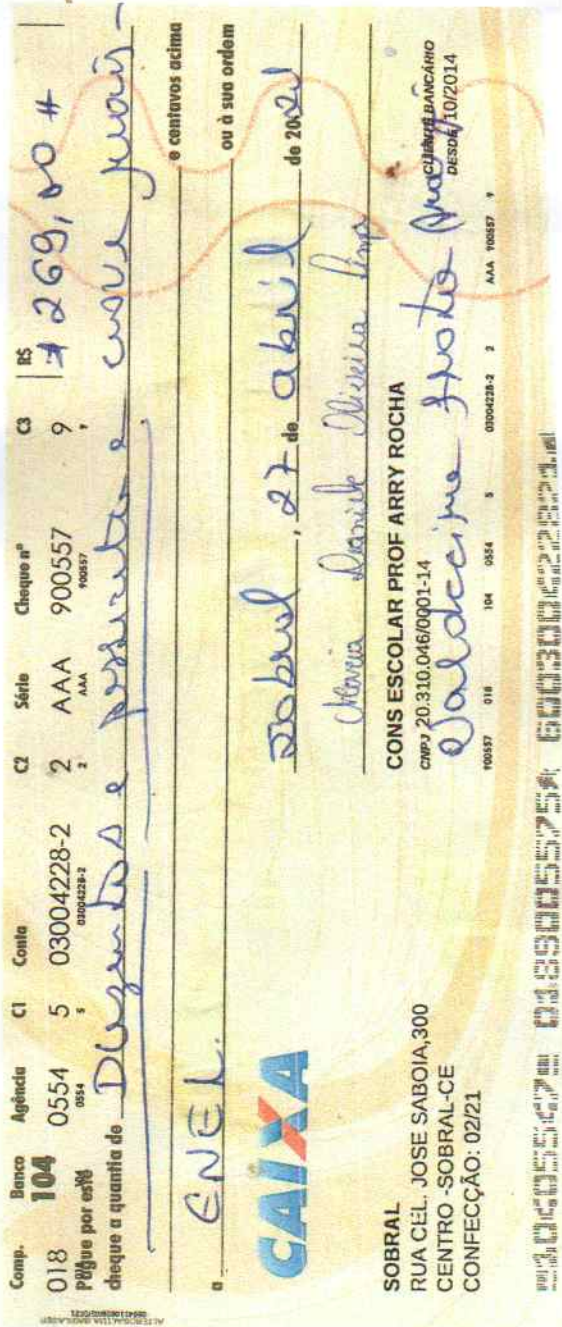 Comp. Banco Agência C1 Conta C2 Série Cheque nº C3 R$
018 104 0554 5 03004228-2 2 AAA 900557 9 # 269,00 #
0554 5 03004228-2 2 AAA 900557 9
Pague por este
cheque a quantia de Duzentos e sessenta e nove reais
e centavos acima
a ENEL. ou à sua ordem
CAIXA
Sobral, 27 de abril de 2021
Maria Daniele Oliveira Lima
SOBRAL
RUA CEL. JOSE SABOIA,300
CENTRO -SOBRAL-CE
CONFECÇÃO: 02/21
CONS ESCOLAR PROF ARRY ROCHA
CNPJ 20.310.046/0001-14
CLIENTE BANCÁRIO
DESDE 10/2014
900557 018 104 0554 5 03004228-2 2 AAA 900557 9